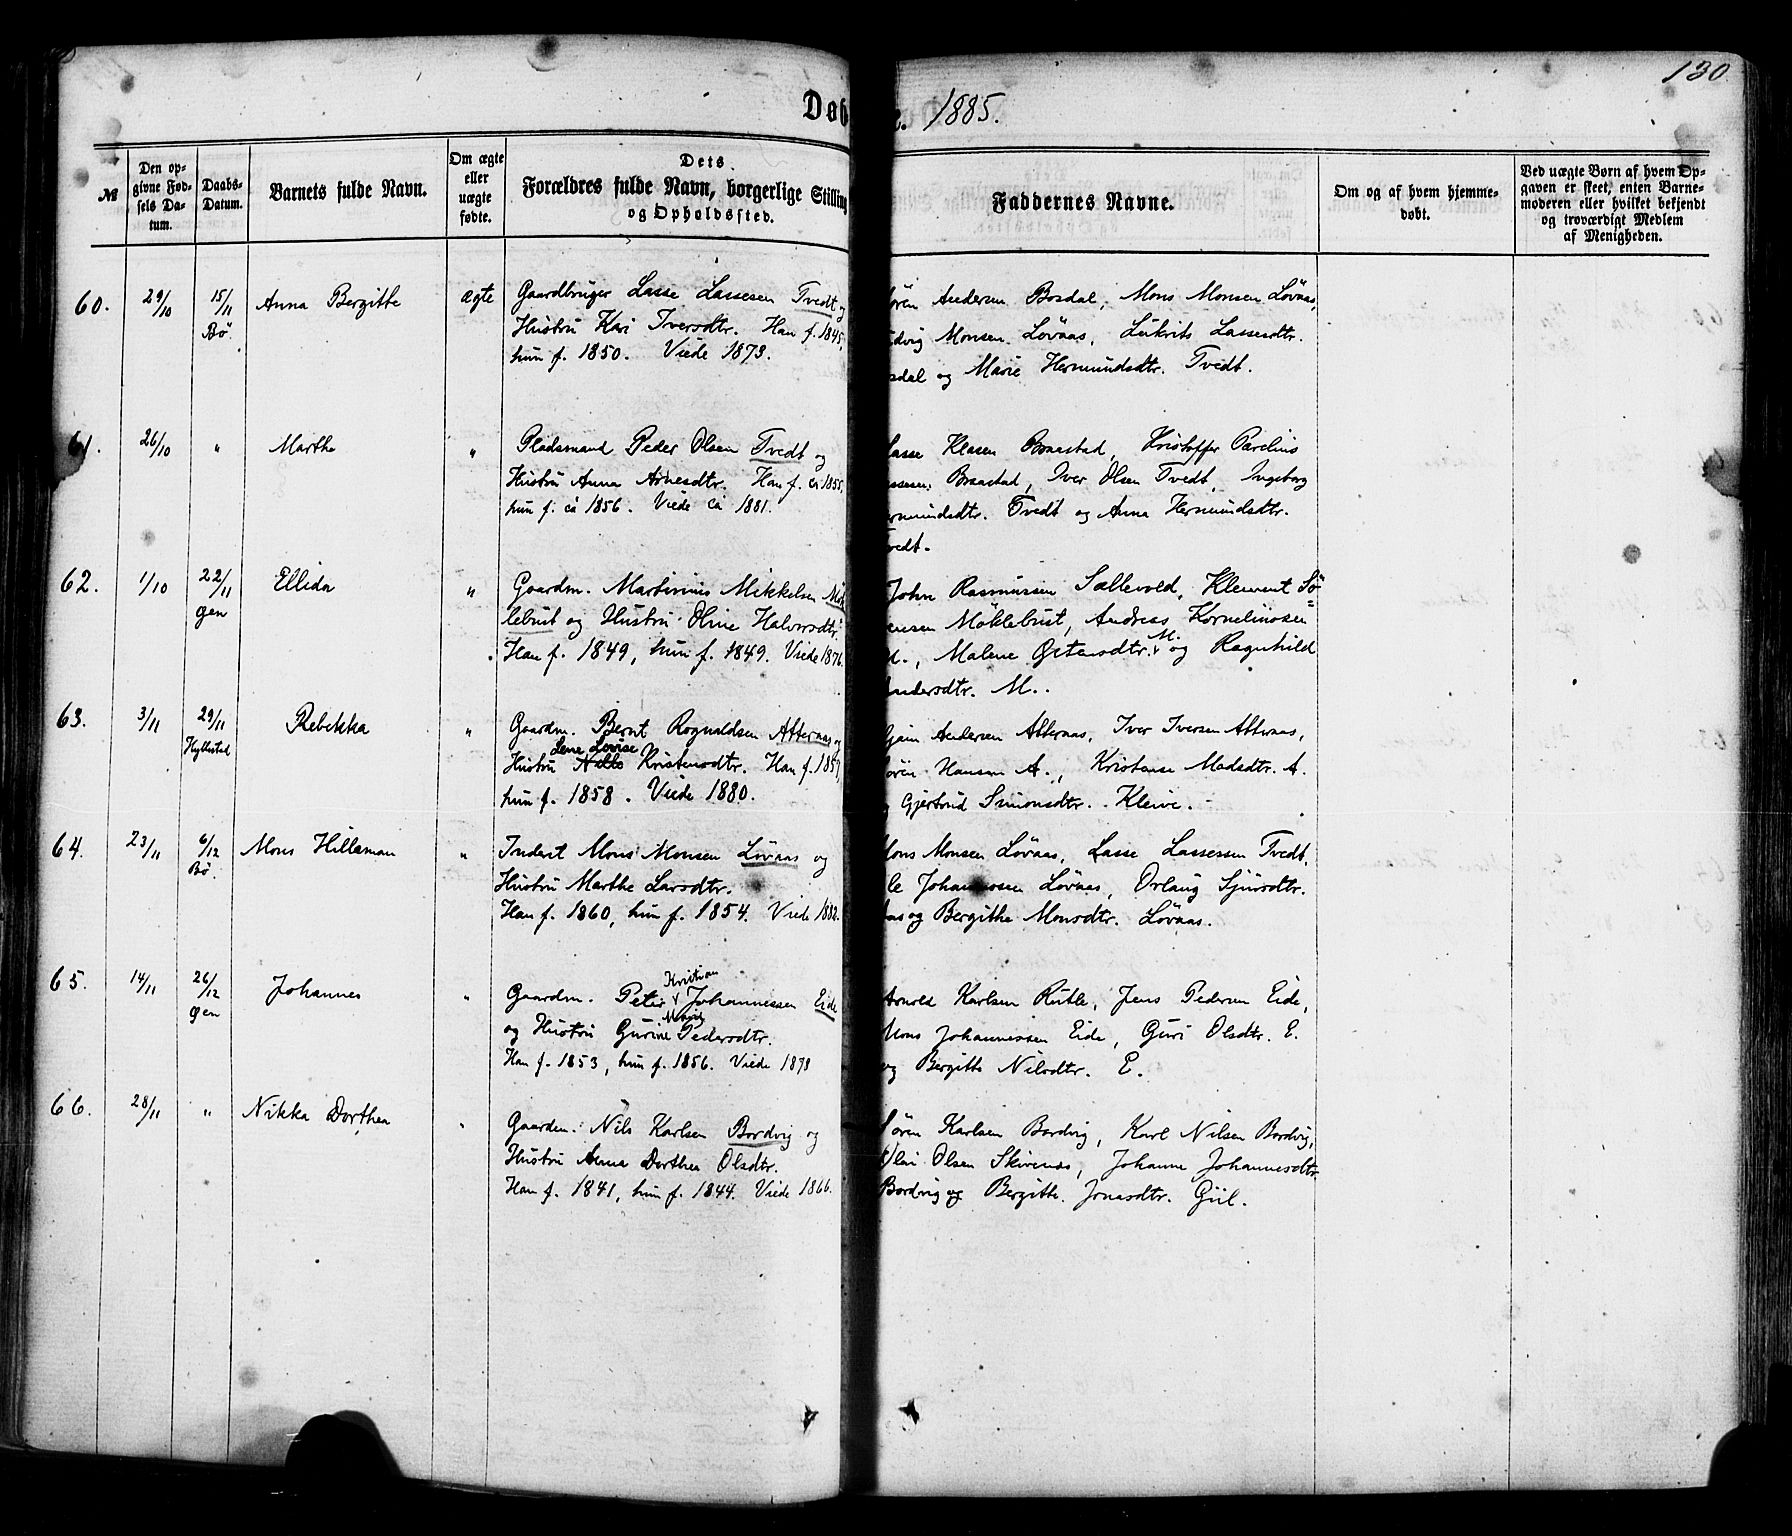 130
Døb
1885.
№
Den op-
givne Fød-
sels Da-
tum.
Daabs-
Datum.
Barnets fulde Navn.
Om ægte
eller
uægte
fødte.
Dets
Forældres fulde Navn, borgerlige Stilling
og Opholdssted.
Faddernes Navne.
Om og af hvem hjemme-
døbt.
Ved uægte Børn af hvem Op-
gaven er skeet, enten Barne-
moderen eller hvilket bekjendt
og troværdigt Medlem
af Menigheden.
60.
29/10
15/11
Bö.
Anna Bergitte
ægte
Gaardbruger Lasse Lassesen Tvedt og
Hustru Kari Iversdtr. Han f. 1845,
hun f. 1850. Viede 1873.
ören Andersen Bosdal, Mons Monsen Lövaas,
dvig Monsen Lövaas, Lukrits Lassesdtr.
sdal og Marie Hermundsdtr. Tvedt.
61.
26/10
"
Marthe
"
Pladsmand Peder Olsen Tvedt og
Hustru Anna Arnesdtr. Han f. ca 1855,
hun f. ca 1856. Viede ca 1881.
asse Klasen Braastad, Kristoffer Parelius
Braastad, Iver Olsen Tvedt, Ingeborg
ermundsdtr. Tvedt og Anna Hermundsdtr.
vedt.
62.
1/10
22/11
gen
Ellida
"
Gaardm. Martinius Mikkelsen Mök
lebust og Hustru Oline Halvorsdtr.
Han f. 1849, hun f. 1849. Viede 1876.
John Rasmussen Sællevold, Klement Sö=
rensen Möklebust, Andreas Korneliussen
M., Malene Østensdtr. M. og Ragnhild
Andersdtr. M..
63.
3/11
29/11
Hyllestad
Rebekka
"
Gaardm. Bernt Rognaldsen Atteraas og
Lene Lovise
Hustru Nille Kristensdtr. Han f. 1857,
hun f. 1858. Viede 1880.
Andersen Atteraas, Iver Iversen Atteraas,
ören Hansen A., Kristense Madsdtr. A.
Gjertrud Simonsdtr. Kleive.
64.
23/11
6/12
Bö.
Mons Hilleman
"
Inderst Mons Monsen Lövaas og
Hustru Marthe Larsdtr.
Han f. 1860, hun f. 1854. Viede 1882.
Mons Monsen Lövaas, Lasse Lassessen Tvedt,
le Johannessen Lövaas, Orlaug Sjursdtr.
aas og Bergithe Monsdtr. Lövaas.
65.
14/11
26/12
gen
Johannes
"
Kristian
Gaardm. Peter Johannessen Eide
Marie
og Hustru Gurine Pedersdtr.
Han f. 1853, hun f. 1856. Viede 1878
Arnold Karlsen Rutle, Jens Pedersen Eide,
Mons Johannessen Eide, Guri Olsdtr. E.
og Bergitte Nilsdtr. E.
66.
28/11
"
Nikka Dorthea
"
Gaardm. Nils Karlsen Bordvig og
Hustru Anna Dorthea Olsdtr.
Han f. 1841, hun f. 1844. Viede 1866.
Sören Karlsen Bordvig, Karl Nilsen Bordvig,
Olai Olsen Skivenes, Johanne Johannesdtr.
Bordvig og Bergitte Jonasdtr. Giil.